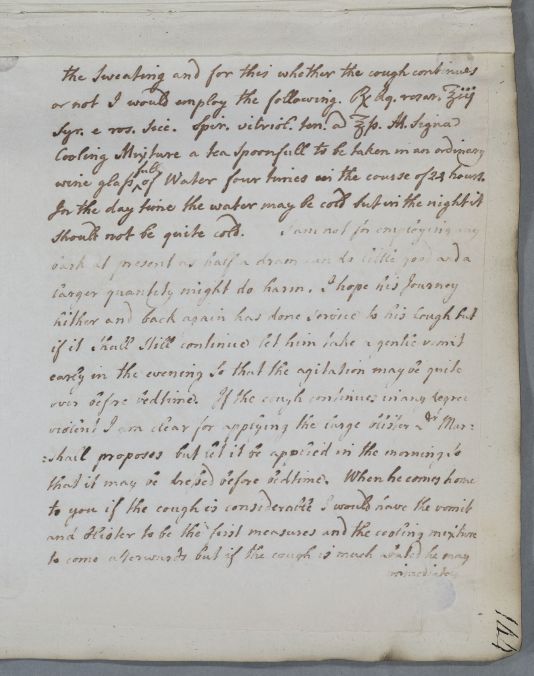 the Sweating and for this whether the cough continues
or not I would employ the following. ℞ Aq. rosar. ℥iij
Syr. e ros. sicc. Spir. vitriol. ten. a ℥ſs. M. Signa
Cooling Mixture a tea spoonfull to be taken in an ordinary
wine glass full of Water four times in the course of 24 hours.
In the day time the water may be cold but in the night it
should not be quite cold. I am not for employing any
bark at present as half a dram can do little good and a
larger quantity might do harm. I hope his Journey
hither and back again has done service to his Cough but
if it shall still continue let him take a gentle vomit
early in the evening so that the agitation may be quite
over before bedtime. If the cough continues in any degree
violent I am clear for applying the large blister Dr. Mar-
-shall proposes but let it be applied in the morning so
that it may be dressed before bedtime. When he comes home
to you if the cough is considerable I would have the vomit
and blister to be the first measures and the cooling mixture
to come afterwards but if the cough is much abated he may
immediately
144